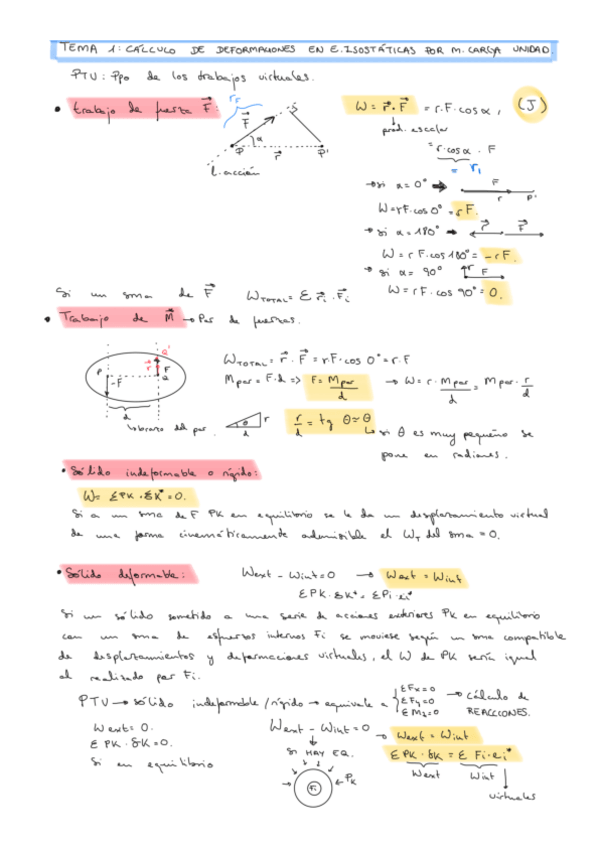 TEMA 1: CÁLCULO DE DEFORMACIONES EN E. ISOSTÁTICAS POR M. CARGA UNIDAD.
PTV: Ppo de los trabajos virtuales.
• trabajo de fuerza F⃗:
r₁
F⃗
S
α
P
r⃗
P'
l. acción
W = r⃗ · F⃗ = r·F·cos α, (J)
prod. escalar
= r·cos α · F
= r₁
→ si α = 0° → F r P'
W = rF·cos 0° = rF.
→ si α = 180° → r⃗ F⃗
W = r F·cos 180° = -rF.
→ si α = 90° r F
W = rF·cos 90° = 0.
Si un sma de F⃗ W_TOTAL = Σ r⃗i · F⃗i
• Trabajo de M⃗ → Par de fuerzas.
Q'
P
-F
r⃗
F
Q
d
↳ brazo del par.
W_TOTAL = r⃗ · F⃗ = rF·cos 0° = r·F
M par = F·d => F = M par / d → W = r · M par / d = M par · r / d
θ r d
r / d = tg θ ≃ θ
↳ si θ es muy pequeño se
pone en radianes.
• Sólido indeformable o rígido:
W = Σ PK · δK* = 0.
Si a un sma de F PK en equilibrio se le da un desplazamiento virtual
de una forma cinemáticamente admisible el W_T del sma = 0.
• Sólido deformable: Wext - Wint = 0 → Wext = Wint
Σ PK · δK* = Σ Fi · ei*
Si un sólido sometido a una serie de acciones exteriores PK en equilibrio
con un sma de esfuerzos internos Fi se moviese según un sma compatible
de desplazamientos y deformaciones virtuales, el W de PK sería igual
al realizado por Fi.
PTV → sólido indeformable / rígido → equivale a { ΣFx = 0 ΣFy = 0 ΣMz = 0 → Cálculo de REACCIONES.
Wext = 0. Wext - Wint = 0 → Wext = Wint
Σ PK · δK = 0. SI HAY EQ. Σ PK · δK = Σ Fi · ei*
Si en equilibrio Fi PK Wext Wint
virtuales